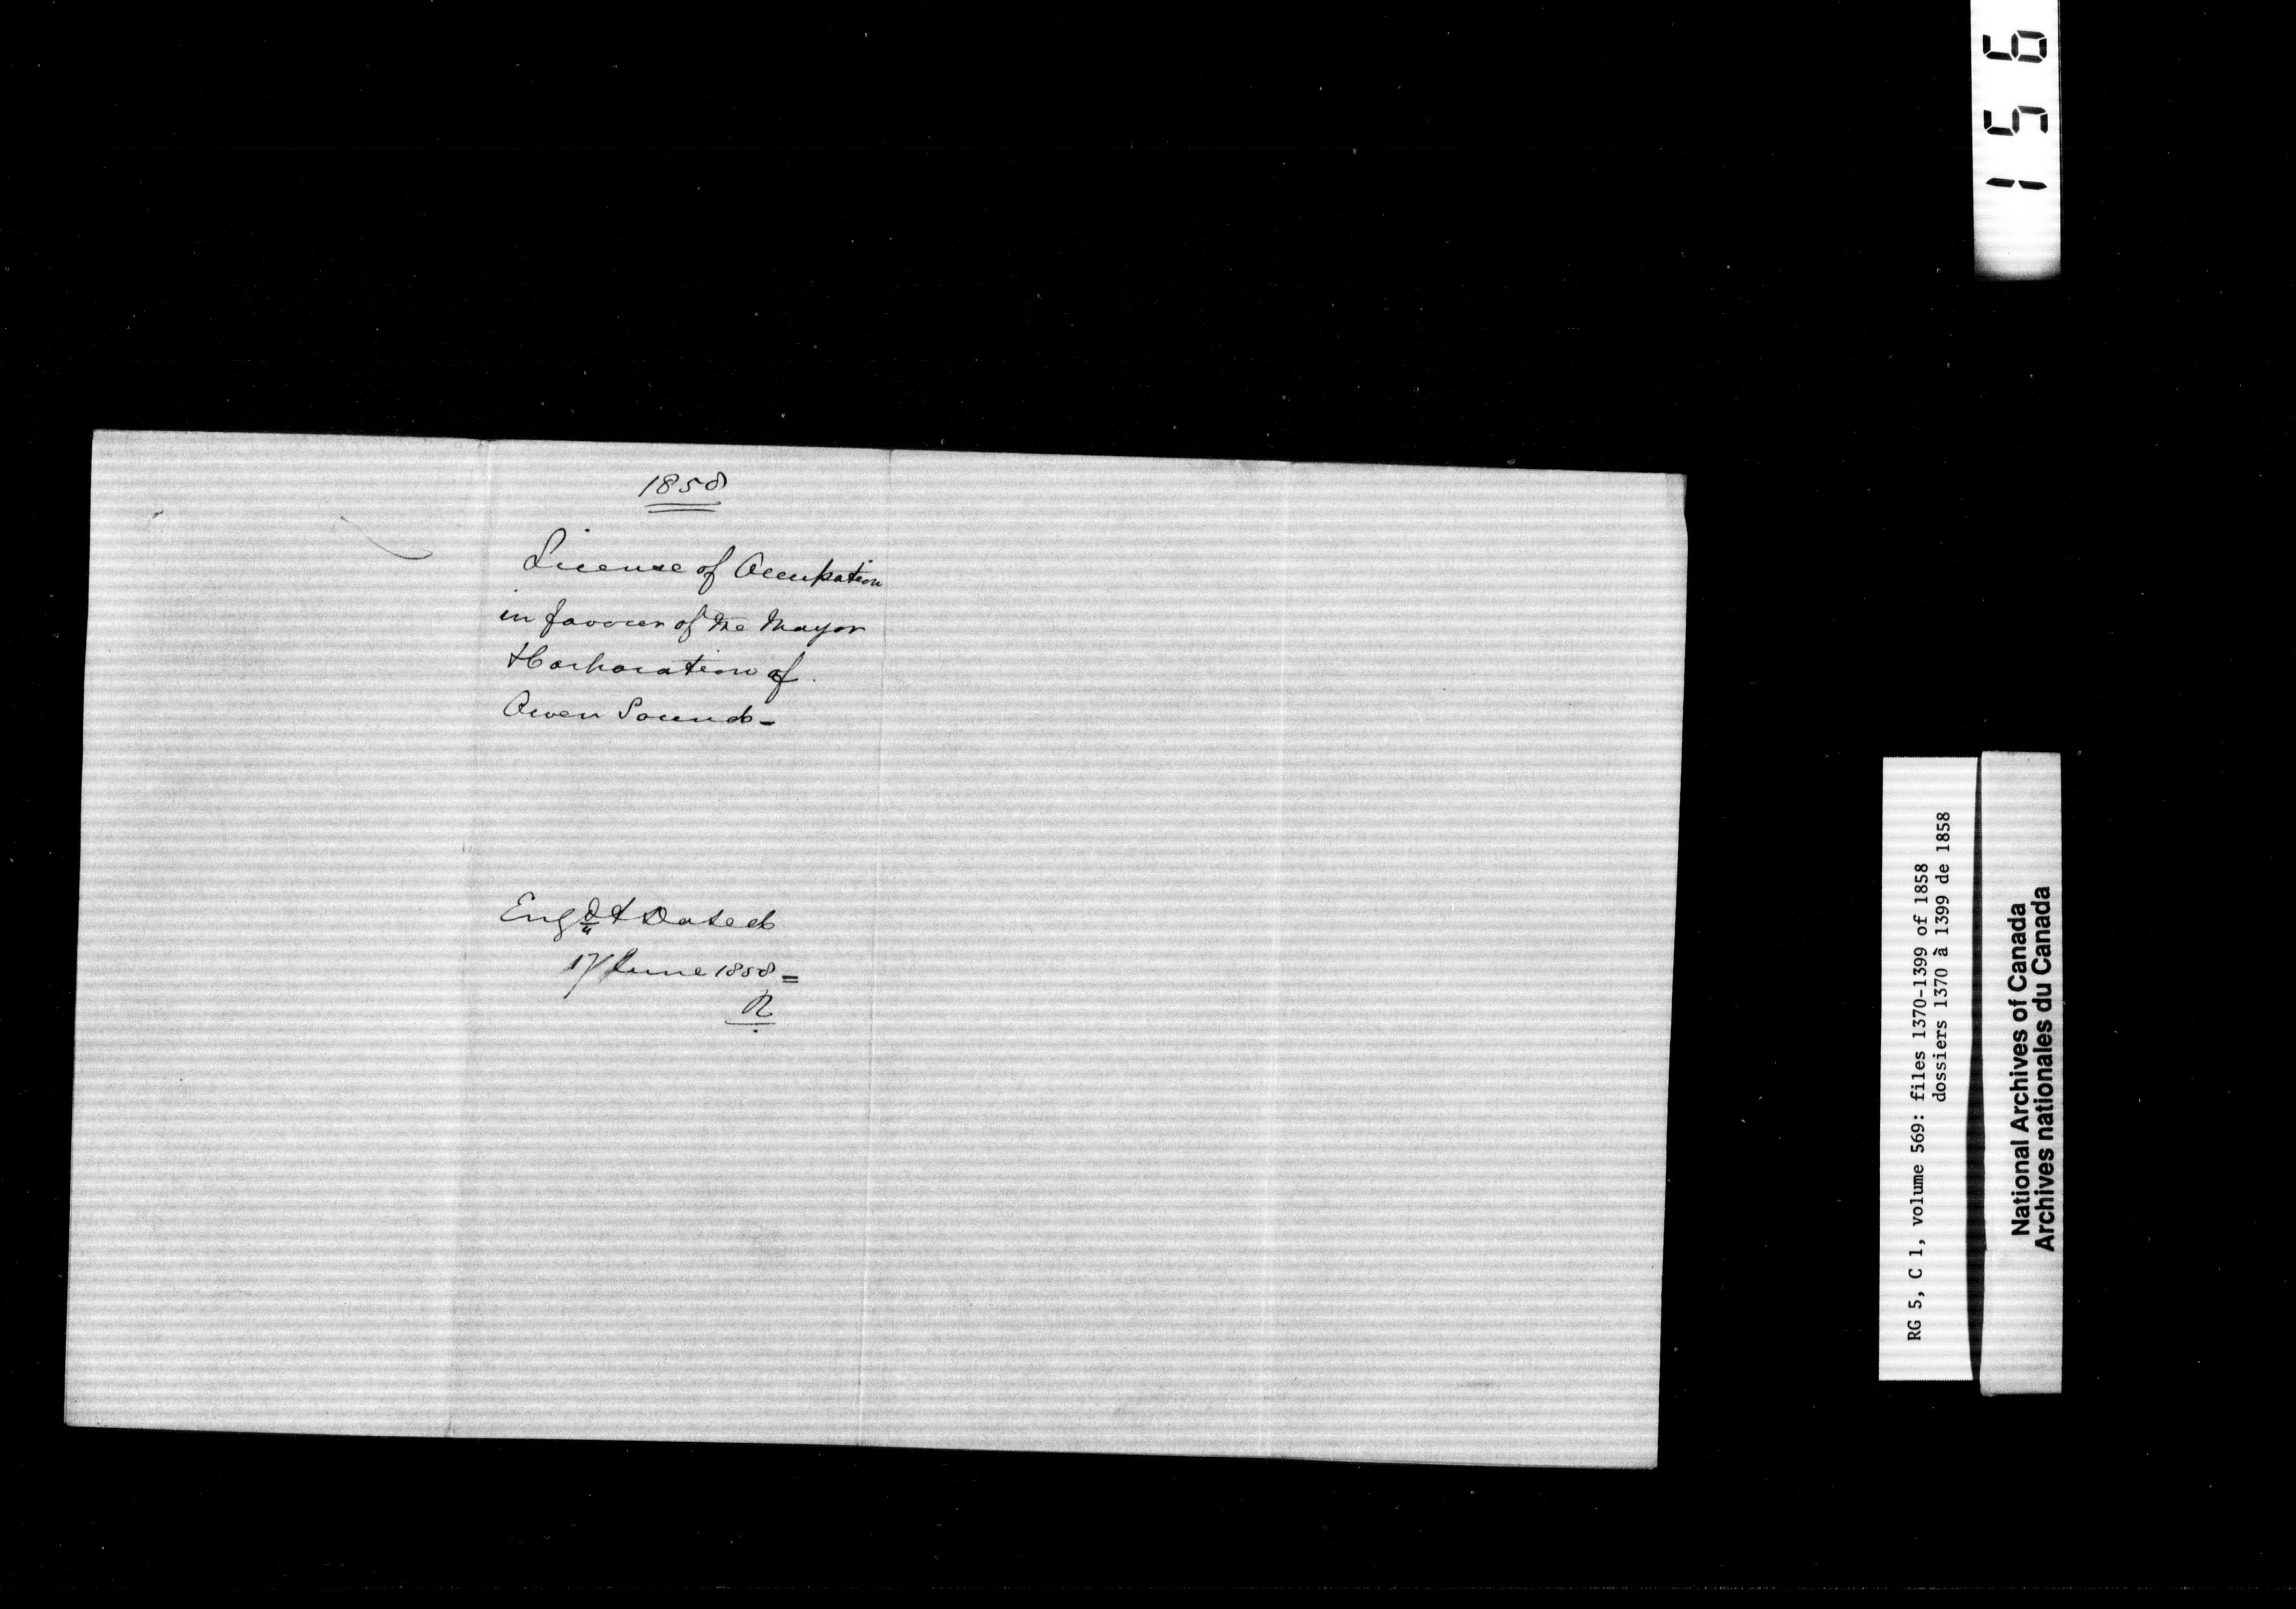 1858
License of Occupation
in favour of the Mayor
& Corporation of
Owen Sound -
Engd & Dated
17 June 1858 =
R
156
RG 5, C 1, volume 569: files 1370-1399 of 1858
dossiers 1370 à 1399 de 1858
National Archives of Canada
Archives nationales du Canada